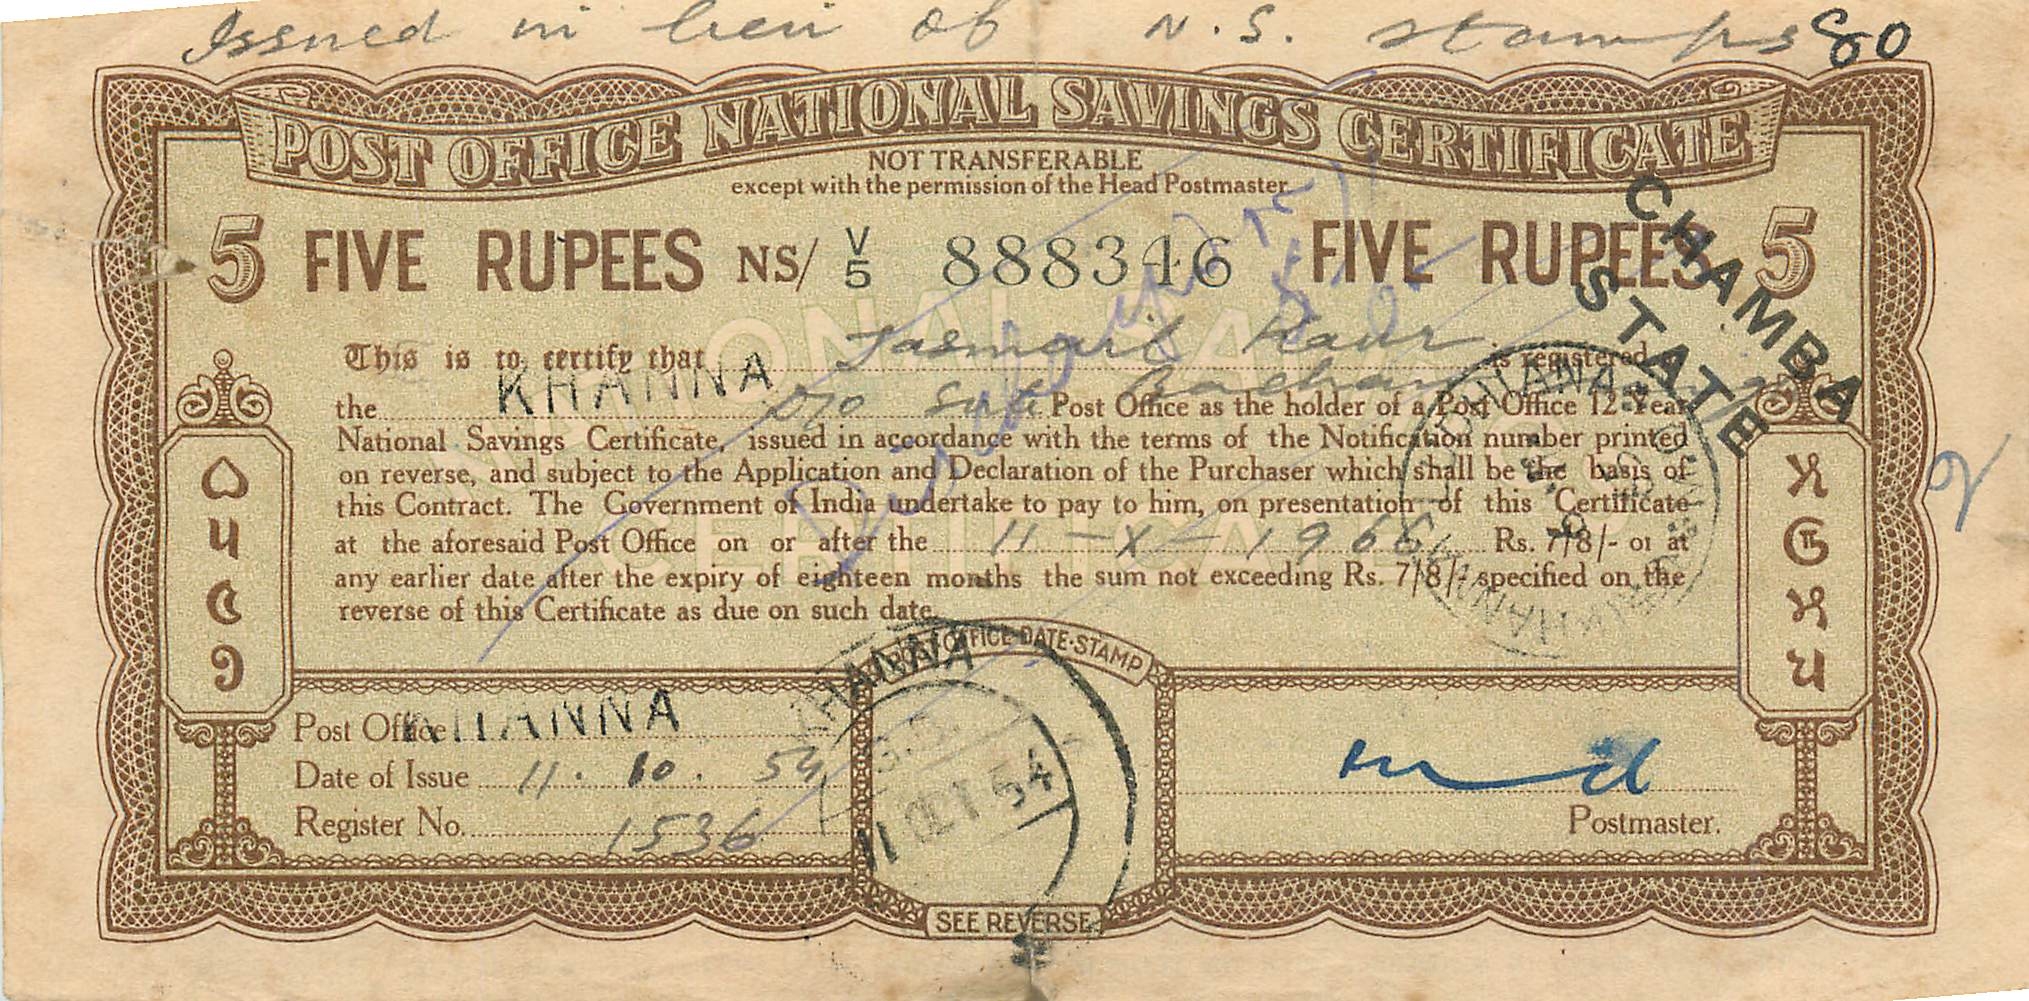 Issued in lieu of N.S. stamps 80
POST OFFICE NATIONAL SAVINGS CERTIFICATE
NOT TRANSFERABLE
except with the permission of the Head Postmaster
5 FIVE RUPEES NS/ V/5 888346 FIVE RUPEES 5
CHAMBA
STATE
This is to certify that Jasmail Kaur is registered
KHANNA
the D/o Post Office as the holder of a Post Office 12-Year
National Savings Certificate, issued in accordance with the terms of the Notification number printed
on reverse, and subject to the Application and Declaration of the Purchaser which shall be the basis of
this Contract. The Government of India undertake to pay to him, on presentation of this Certificate
at the aforesaid Post Office on or after the 11-X-1966 Rs. 7/8/- or at
any earlier date after the expiry of eighteen months the sum not exceeding Rs. 7/8/- specified on the
reverse of this Certificate as due on such date.
POST OFFICE DATE-STAMP
KHANNA
11 OCT 54
Post Office KHANNA
Date of Issue 11. 10. 54
Register No. 1536
Postmaster.
SEE REVERSE